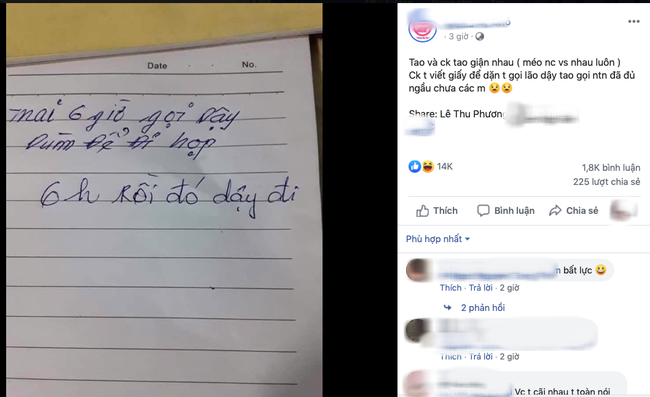 Date No.
mai 6 giờ gọi dậy
dùm để đi họp
6h rồi đó dậy đi
3 giờ
Tao và ck tao giận nhau ( méo nc vs nhau luôn )
Ck t viết giấy để dặn t gọi lão dậy tao gọi ntn đã đủ
ngầu chưa các m 😫😫
Share: Lê Thu Phương
14K
1,8K bình luận
225 lượt chia sẻ
Thích Bình luận Chia sẻ
Phù hợp nhất
bất lực 😃
Thích · Trả lời · 2 giờ
2 phản hồi
Thích · Trả lời · 2 giờ
Vc t cãi nhau t toàn nói